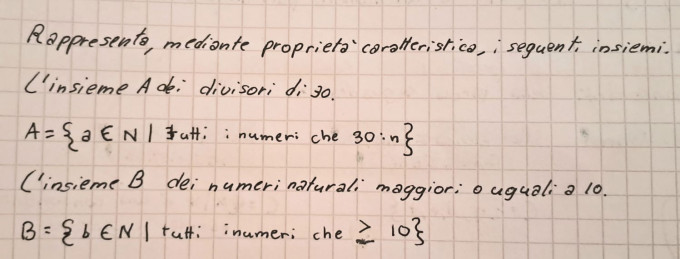 Rappresenta, mediante proprietà caratteristica, i seguenti insiemi.
L'insieme A dei divisori di 30.
A = {a ∈ N | tutti i numeri che 30:n}
L'insieme B dei numeri naturali maggiori o uguali a 10.
B = {b ∈ N | tutti i numeri che ≥ 10}